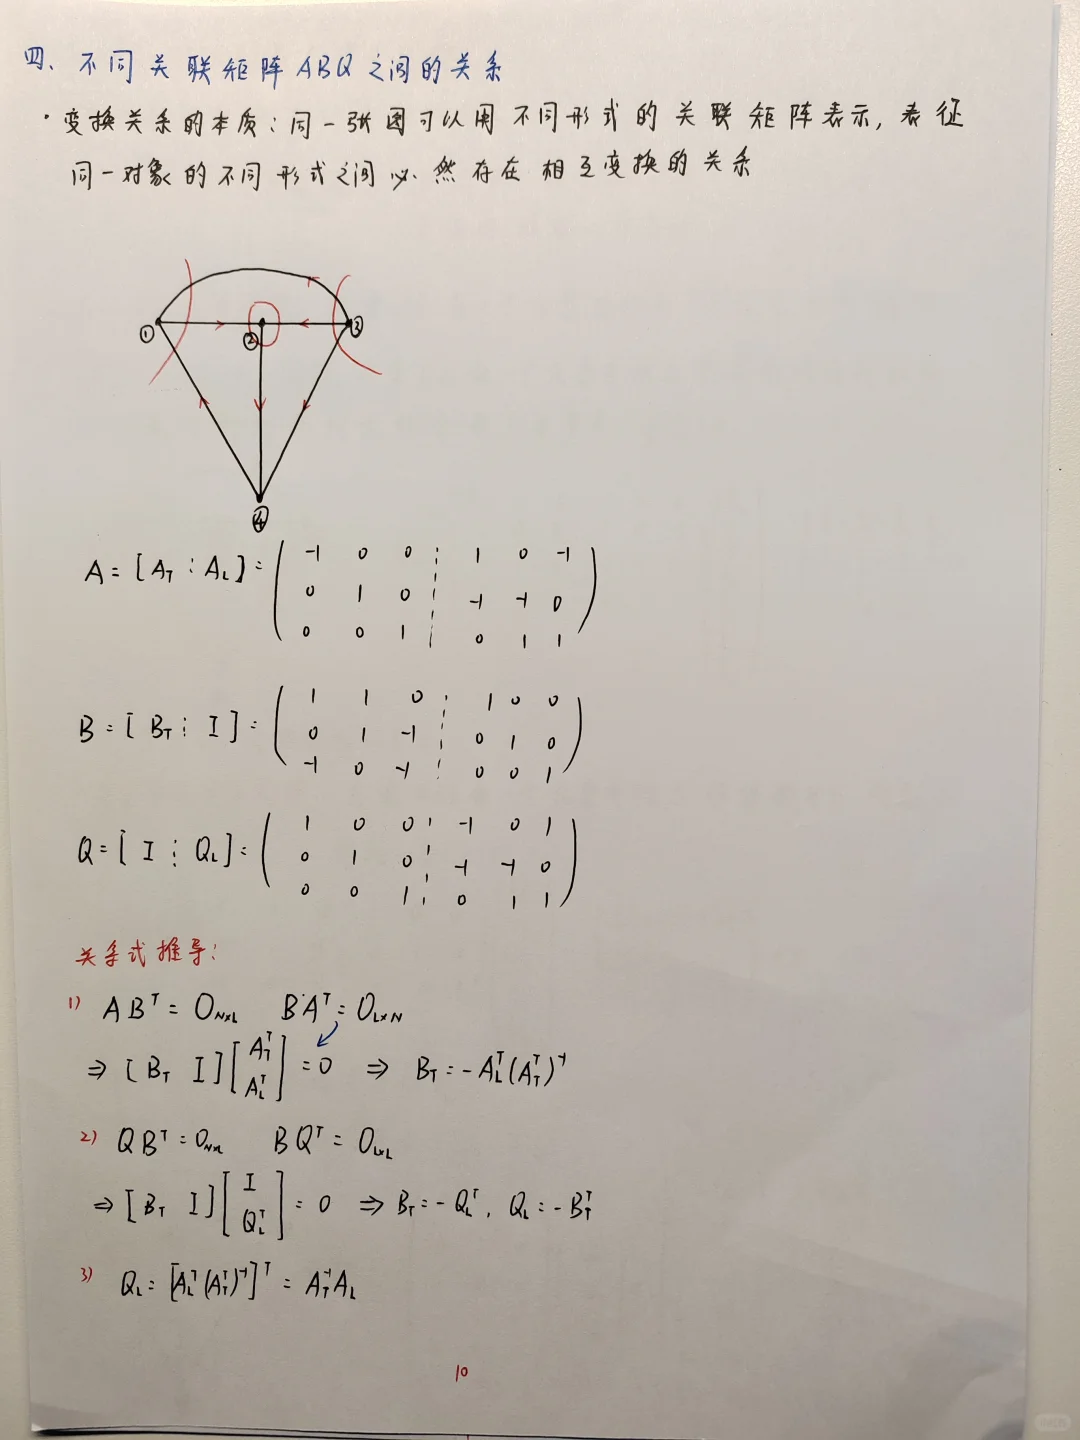 四、不同关联矩阵ABQ之间的关系
·变换关系的本质:同一张图可以用不同形式的关联矩阵表示,表征
同一对象的不同形式之间必然存在相互变换的关系
① ② ③
④
A=[A_T ⋮ A_L]= ( -1 0 0 ⋮ 1 0 -1
0 1 0 ⋮ -1 -1 0
0 0 1 ⋮ 0 1 1 )
B=[B_T ⋮ I]= ( 1 1 0 ⋮ 1 0 0
0 1 -1 ⋮ 0 1 0
-1 0 -1 ⋮ 0 0 1 )
Q=[I ⋮ Q_L]= ( 1 0 0 ⋮ -1 0 1
0 1 0 ⋮ -1 -1 0
0 0 1 ⋮ 0 1 1 )
关系式推导:
1) AB^T=0_{N×L} BA^T=0_{L×N}
⇒ [B_T I][A_T^T A_L^T]=0 ⇒ B_T=-A_L^T(A_T^T)^{-1}
2) QB^T=0_{N×L} BQ^T=0_{L×L}
⇒ [B_T I][I Q_L^T]=0 ⇒ B_T=-Q_L^T, Q_L=-B_T^T
3) Q_L=[A_L^T(A_T^T)^{-1}]^T=A_T^{-1}A_L
10